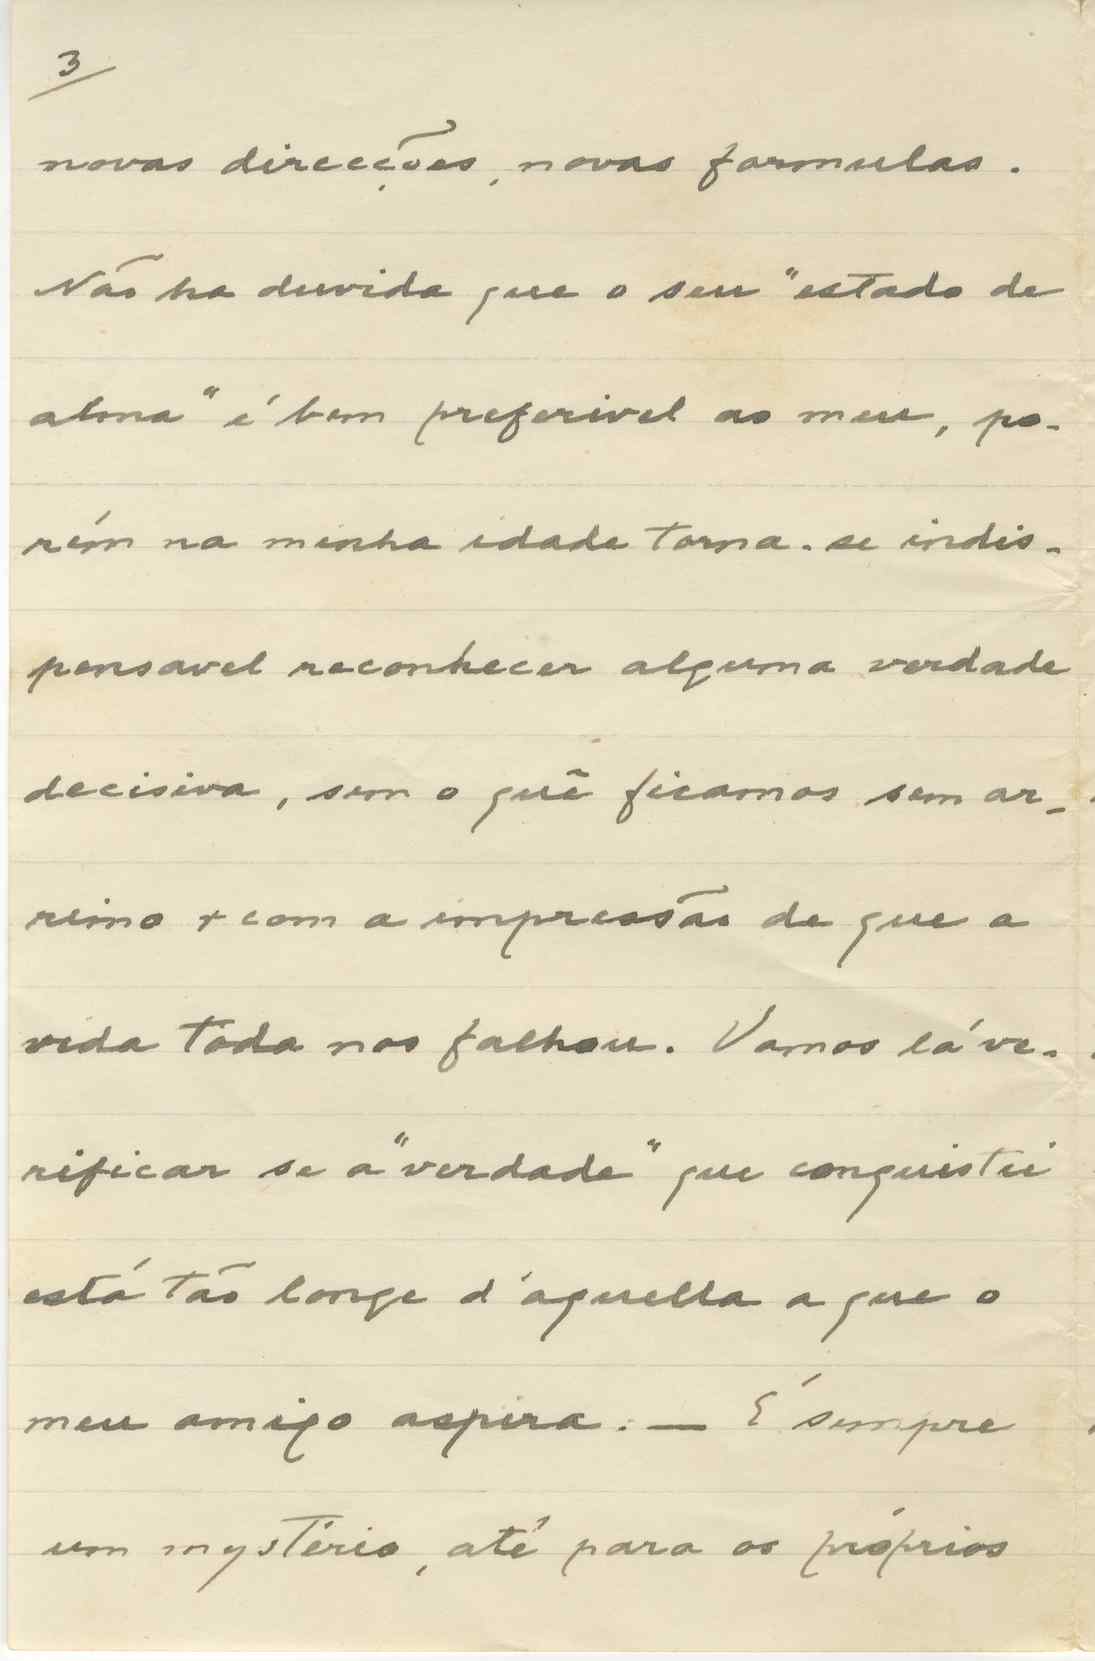 3
novas direcções, novas formulas.
Não ha duvida que o seu "estado de
alma" é bem preferivel ao meu, po-
rém na minha idade torna-se indis-
pensavel reconhecer alguma verdade
decisiva, sem o quê ficamos sem ar-
reimo + com a impressão de que a
vida toda nos falhou. Vamos lá ve-
rificar se a "verdade" que conquistei
está tão longe d'aquella a que o
meu amigo aspira. — É sempre
um mystério, até para os próprios